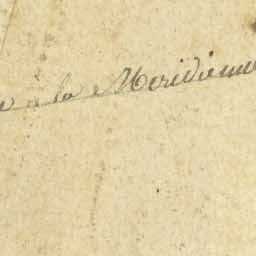 à la Meridienne